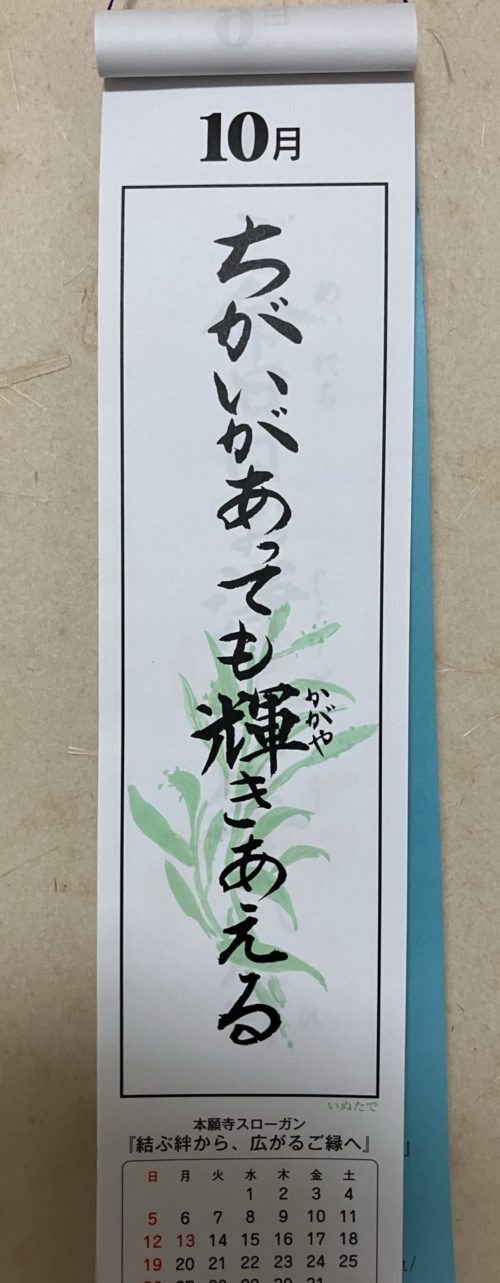 10月
ちがいがあっても輝きあえる
かがや
いぬたで
本願寺スローガン
『結ぶ絆から、広がるご縁へ』
日 月 火 水 木 金 土
1 2 3 4
5 6 7 8 9 10 11
12 13 14 15 16 17 18
19 20 21 22 23 24 25